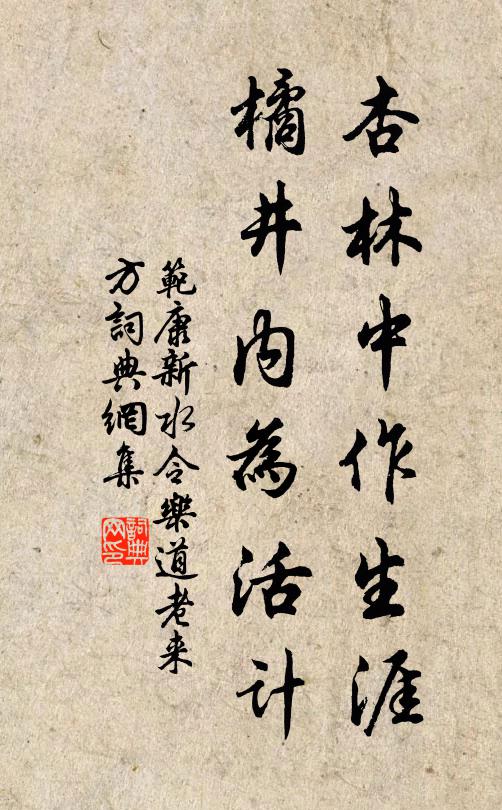 杏林中作生涯
橘井内為活计
範康新水令樂道老来
方詞典網集
詞典网印